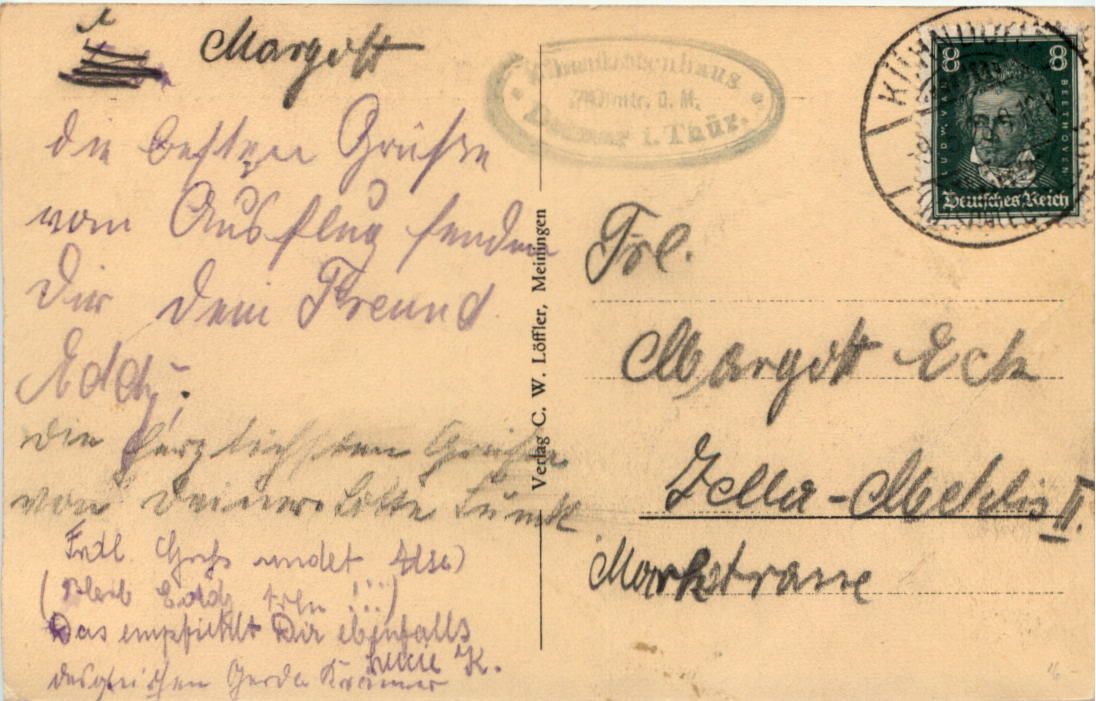 Margott
die besten Grüße
vom Ausflug senden
Dir Dein Freund
Eddy.
Die herzlichsten Grüße
von Deiner Lotte
Frdl. Gruß sendet Ilse)
(Bleib Eddy treu !!!)
Das empfiehlt Dir ebenfalls
K.
desgleichen Gerda Krämer
Verlag C. W. Löffler, Meiningen
i. Thür.
8 8
LUDWIG VAN BEETHOVEN
Deutsches Reich
KÜHNDORF
Frl.
Margott Eck
Zella-Mehlis II.
Markstrasse